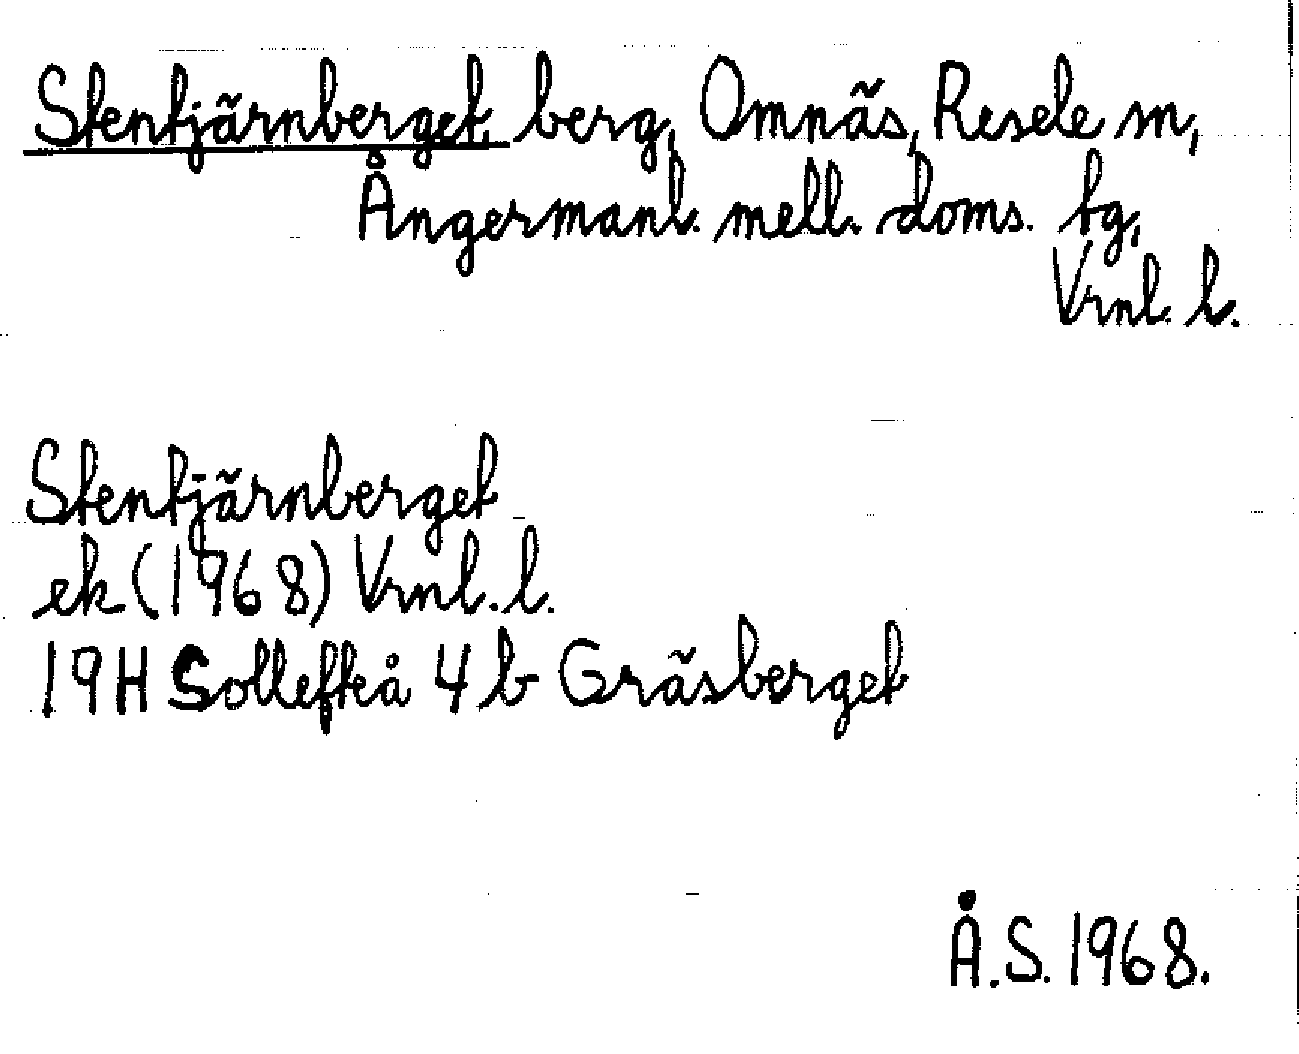 Stentjärnberget, berg, Omnäs, Resele sn,
Ångermanl. mell. doms. tg,
Vrnl. l.
Stentjärnberget
ek (1968) Vrnl. l.
19H Sollefteå 4 b Gräsberget
Å.S. 1968.